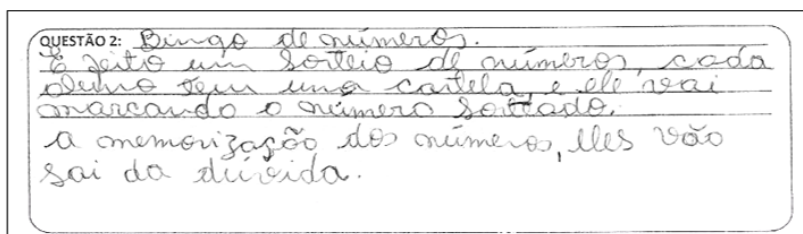 QUESTÃO 2: Bingo de números.
É feito um sorteio de números, cada
aluno tem uma cartela, e ele vai
marcando o número sorteado.
a memorização dos números, eles vão
sai da dúvida.